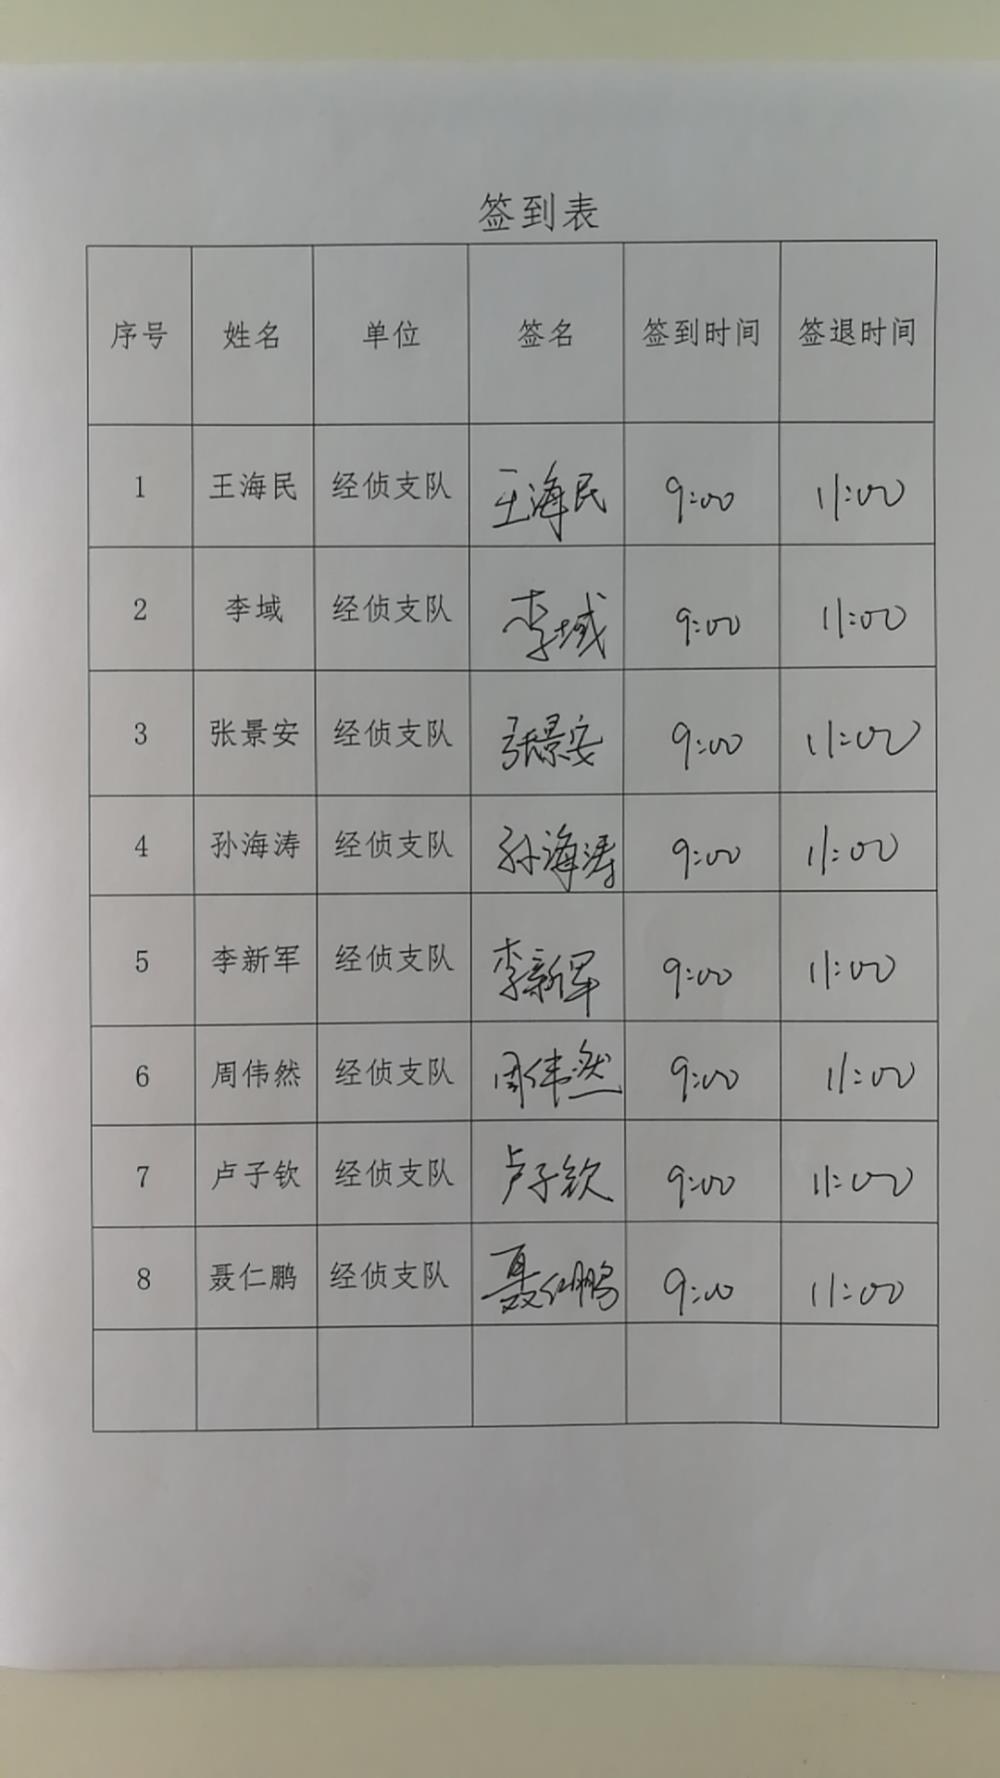 签到表
序号 姓名 单位 签名 签到时间 签退时间
1 王海民 经侦支队 王海民 9:00 11:00
2 李域 经侦支队 李域 9:00 11:00
3 张景安 经侦支队 张景安 9:00 11:00
4 孙海涛 经侦支队 孙海涛 9:00 11:00
5 李新军 经侦支队 李新军 9:00 11:00
6 周伟然 经侦支队 周伟然 9:00 11:00
7 卢子钦 经侦支队 卢子钦 9:00 11:00
8 聂仁鹏 经侦支队 聂仁鹏 9:00 11:00